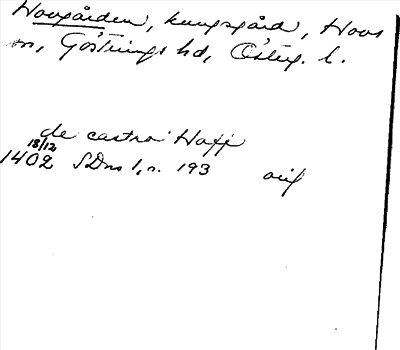 Hovgården, kungsgård, Hovs
sn, Göstrings hd, Österg. l.
de castro Hoff
18/12
1402 SDns 1, n. 193 orig